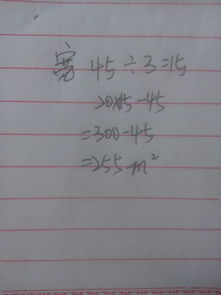 宽 45÷3=15
20×15-45
=300-45
=255m²